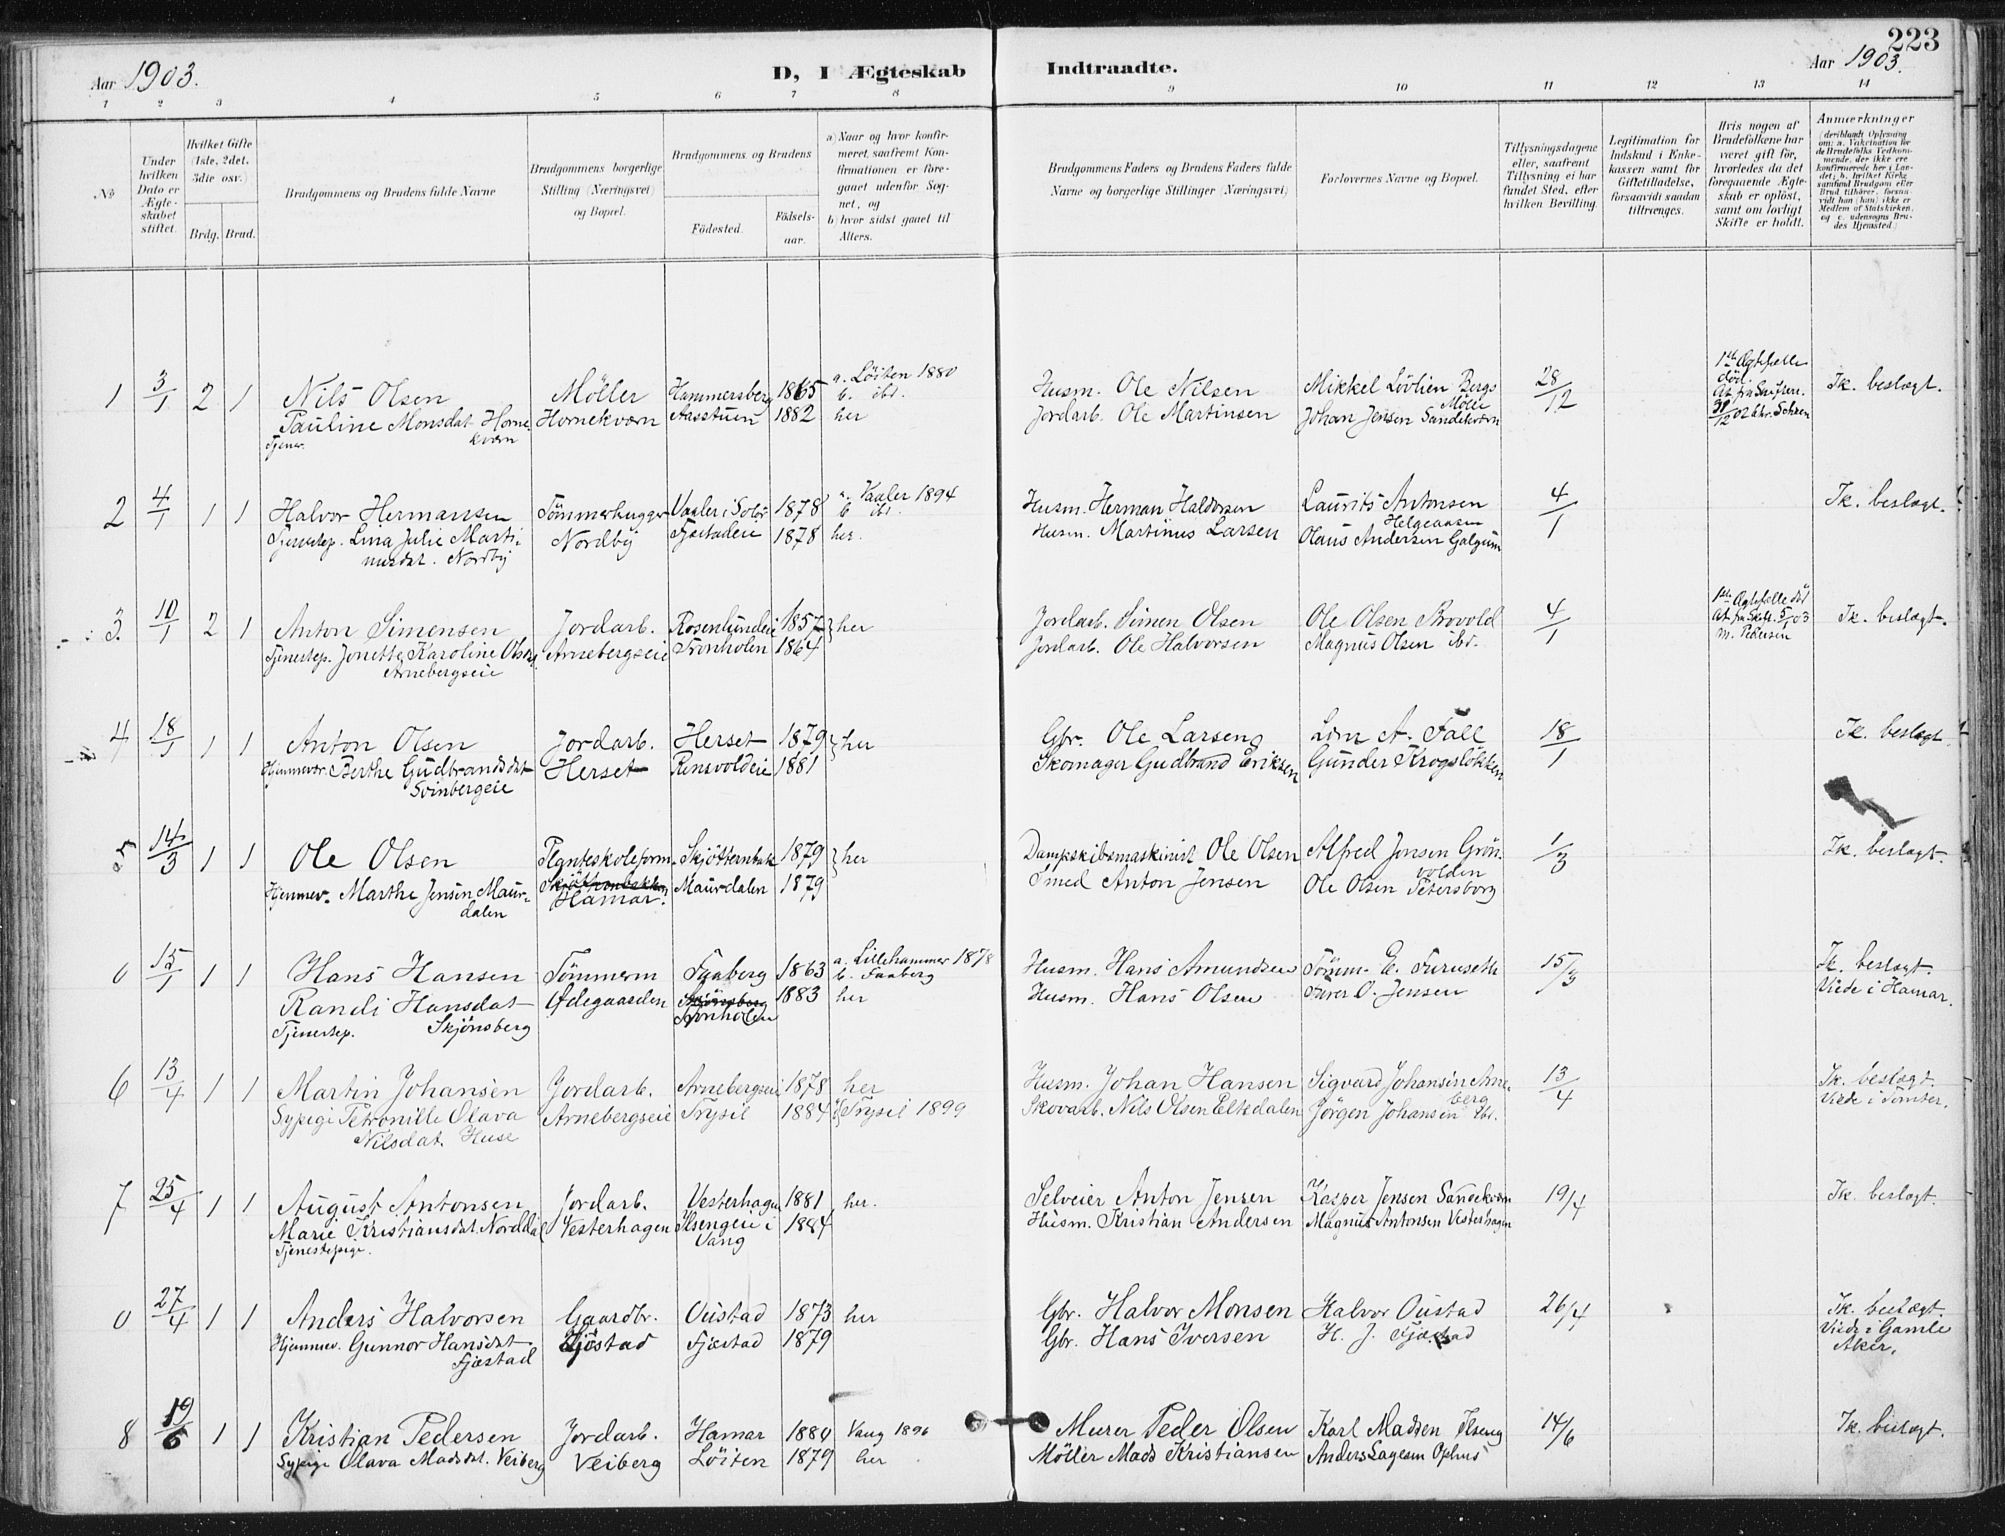 223
Aar 1903.
D, I Ægteskab Indtraadte.
Aar 1903.
1 2 3 4 5 6 7 8 9 10 11 12 13 14
No
Under hvilken Dato er Ægteskabet stiftet.
Hvilket Gifte (1ste, 2det, 3die osv.)
Brdg. Brud.
Brudgommens og Brudens fulde Navne
Brudgommens borgerlige Stilling (Næringsvei) og Bopæl.
Brudgommens og Brudens
Fødested.
Fødselsaar.
a) Naar og hvor konfirmeret, saafremt Konfirmationen er foregaaet udenfor Sognet, og
b) hvor sidst gaaet til Alters.
Brudgommens Faders og Brudens Faders fulde Navne og borgerlige Stillinger (Næringsvei)
Forlovernes Navne og Bopæl.
Tillysningsdagene eller, saafremt Tillysning ei har fundet Sted, efter hvilken Bevilling
Legitimation for Indskud i Enkekassen samt for Giftetilladelse, forsaavidt saadan tiltrænges.
Hvis nogen af Brudefolkene har været gift før, hvorledes da det foregaaende Ægteskab er opløst, samt om lovligt Skifte er holdt.
Anmærkninger
1 3/1 2 1 Nils Olsen Möller Hammersberg 1865 a. Löiten 1880 Husm. Ole Nilsen Mikkel Lövlien Bergs 28/12 Ik. beslægt.
b. ibd. Mölle
Pauline Monsdat Horne- Hornekværn Aasstuen 1882 her Jordarb. Ole Martinsen Johan Jensen Sandekværn
Tjener. kværn
2 4/1 1 1 Halvor Hermansen Tömmerhugger Vaaler i Solör 1878 a. Vaaler 1894 Husm. Herman Haldorsen Laurits Antonsen 4/1 Ik. beslægt.
b ibd. Helgeaasen
Tjenestep. Lina Julie Marti- Nordby 1878 her. Husm. Martinus Larsen Olaus Andersen Galgum
nusdat. Nordby
3. 10/1 2 1 Anton Simensen Jordarb. Rosenlundeie 1857 } her Jordarb. Simen Olsen Ole Olsen Brovold 4/1 Ik. beslægt.
Tjenestep. Jonette Karoline Olsen Arnebergseie Tronholen 1864 Jordarb. Ole Halvorsen Magnus Olsen ibd.
Arnebergseie
4 18/1 1 1 Anton Olsen Jordarb. Herset 1879 } her Gbr. Ole Larsen 18/1 Ik. beslægt
Hjemmev. Berthe Gudbrandsdat Herset Rensvoldeie 1881 Skomager Gudbrand Eriksen Gunder Krogslökken
Svinbergeie
5 14/3 1 1 Ole Olsen 1879 } her Dampskibsmaskinist Ole Olsen Alfred Jensen Grön- 1/3 Ik. beslægt.
volden
Hjemmev. Marthe Jensen Maur- Maurdalen 1879 Smed Anton Jensen Ole Olsen Petersborg
dalen Hamar.
0 15/1 1 1 Hans Hansen Tömmerm Faaberg 1863 a. Lillehammer 1878 Husm. Hans Amundsen Tömm. E. Furuseth 15/3 Ik. beslægt.
b. Faaberg
Randi Hansdat Ødegaarden Skjönsberg 1883 her Husm. Hans Olsen O. Jensen Viede i Hamar.
Tjenestep. Skjönsberg Tronholen
6 13/4 1 1 Martin Johansen Jordarb. Arnebergseie 1878 her Husm. Johan Hansen Sigvard Johansen Arne- 13/4 Ik. beslægt.
berg
Sypige Petronille Olava Arnebergseie Trysil 1884 } Trysil 1899 Skovarb. Nils Olsen Elkedalen Jörgen Johansen ibd. Viede i Tomter.
Nilsdat. Huse
7 25/4 1 1 August Antonsen Jordarb. Vesterhagen 1881 her. Selveier Anton Jensen Kasper Jensen Sandekværn 19/4 Ik. beslægt.
Marie Kristiansdat. Norddal Vesterhagen Ilsengen i 1884 Husm. Kristian Andersen Magnus Antonsen Vesterhagen
Tjenestepige. Vang
0 27/4 1 1 Anders Halvorsen Gaardbr. Oustad 1873 her Gbr. Halvor Monsen Halvor Oustad 26/4 Ik. beslægt.
Hjemmev. Gunnor Hansdat Fjæstad 1879 Gbr. Hans Iversen H. J. Fjæstad Viede i Gamle
Fjæstad Aker.
8 19/6 1 1 Kristian Pedersen Jordarb. Hamar 1884 Vang 1896 Murer Peder Olsen Karl Madsen Ilseng 14/6 Ik. beslægt.
Sypige Olava Madsdat. Veiberg Veiberg Löiten 1879 her Möller Mads Kristiansen Anders Ophus